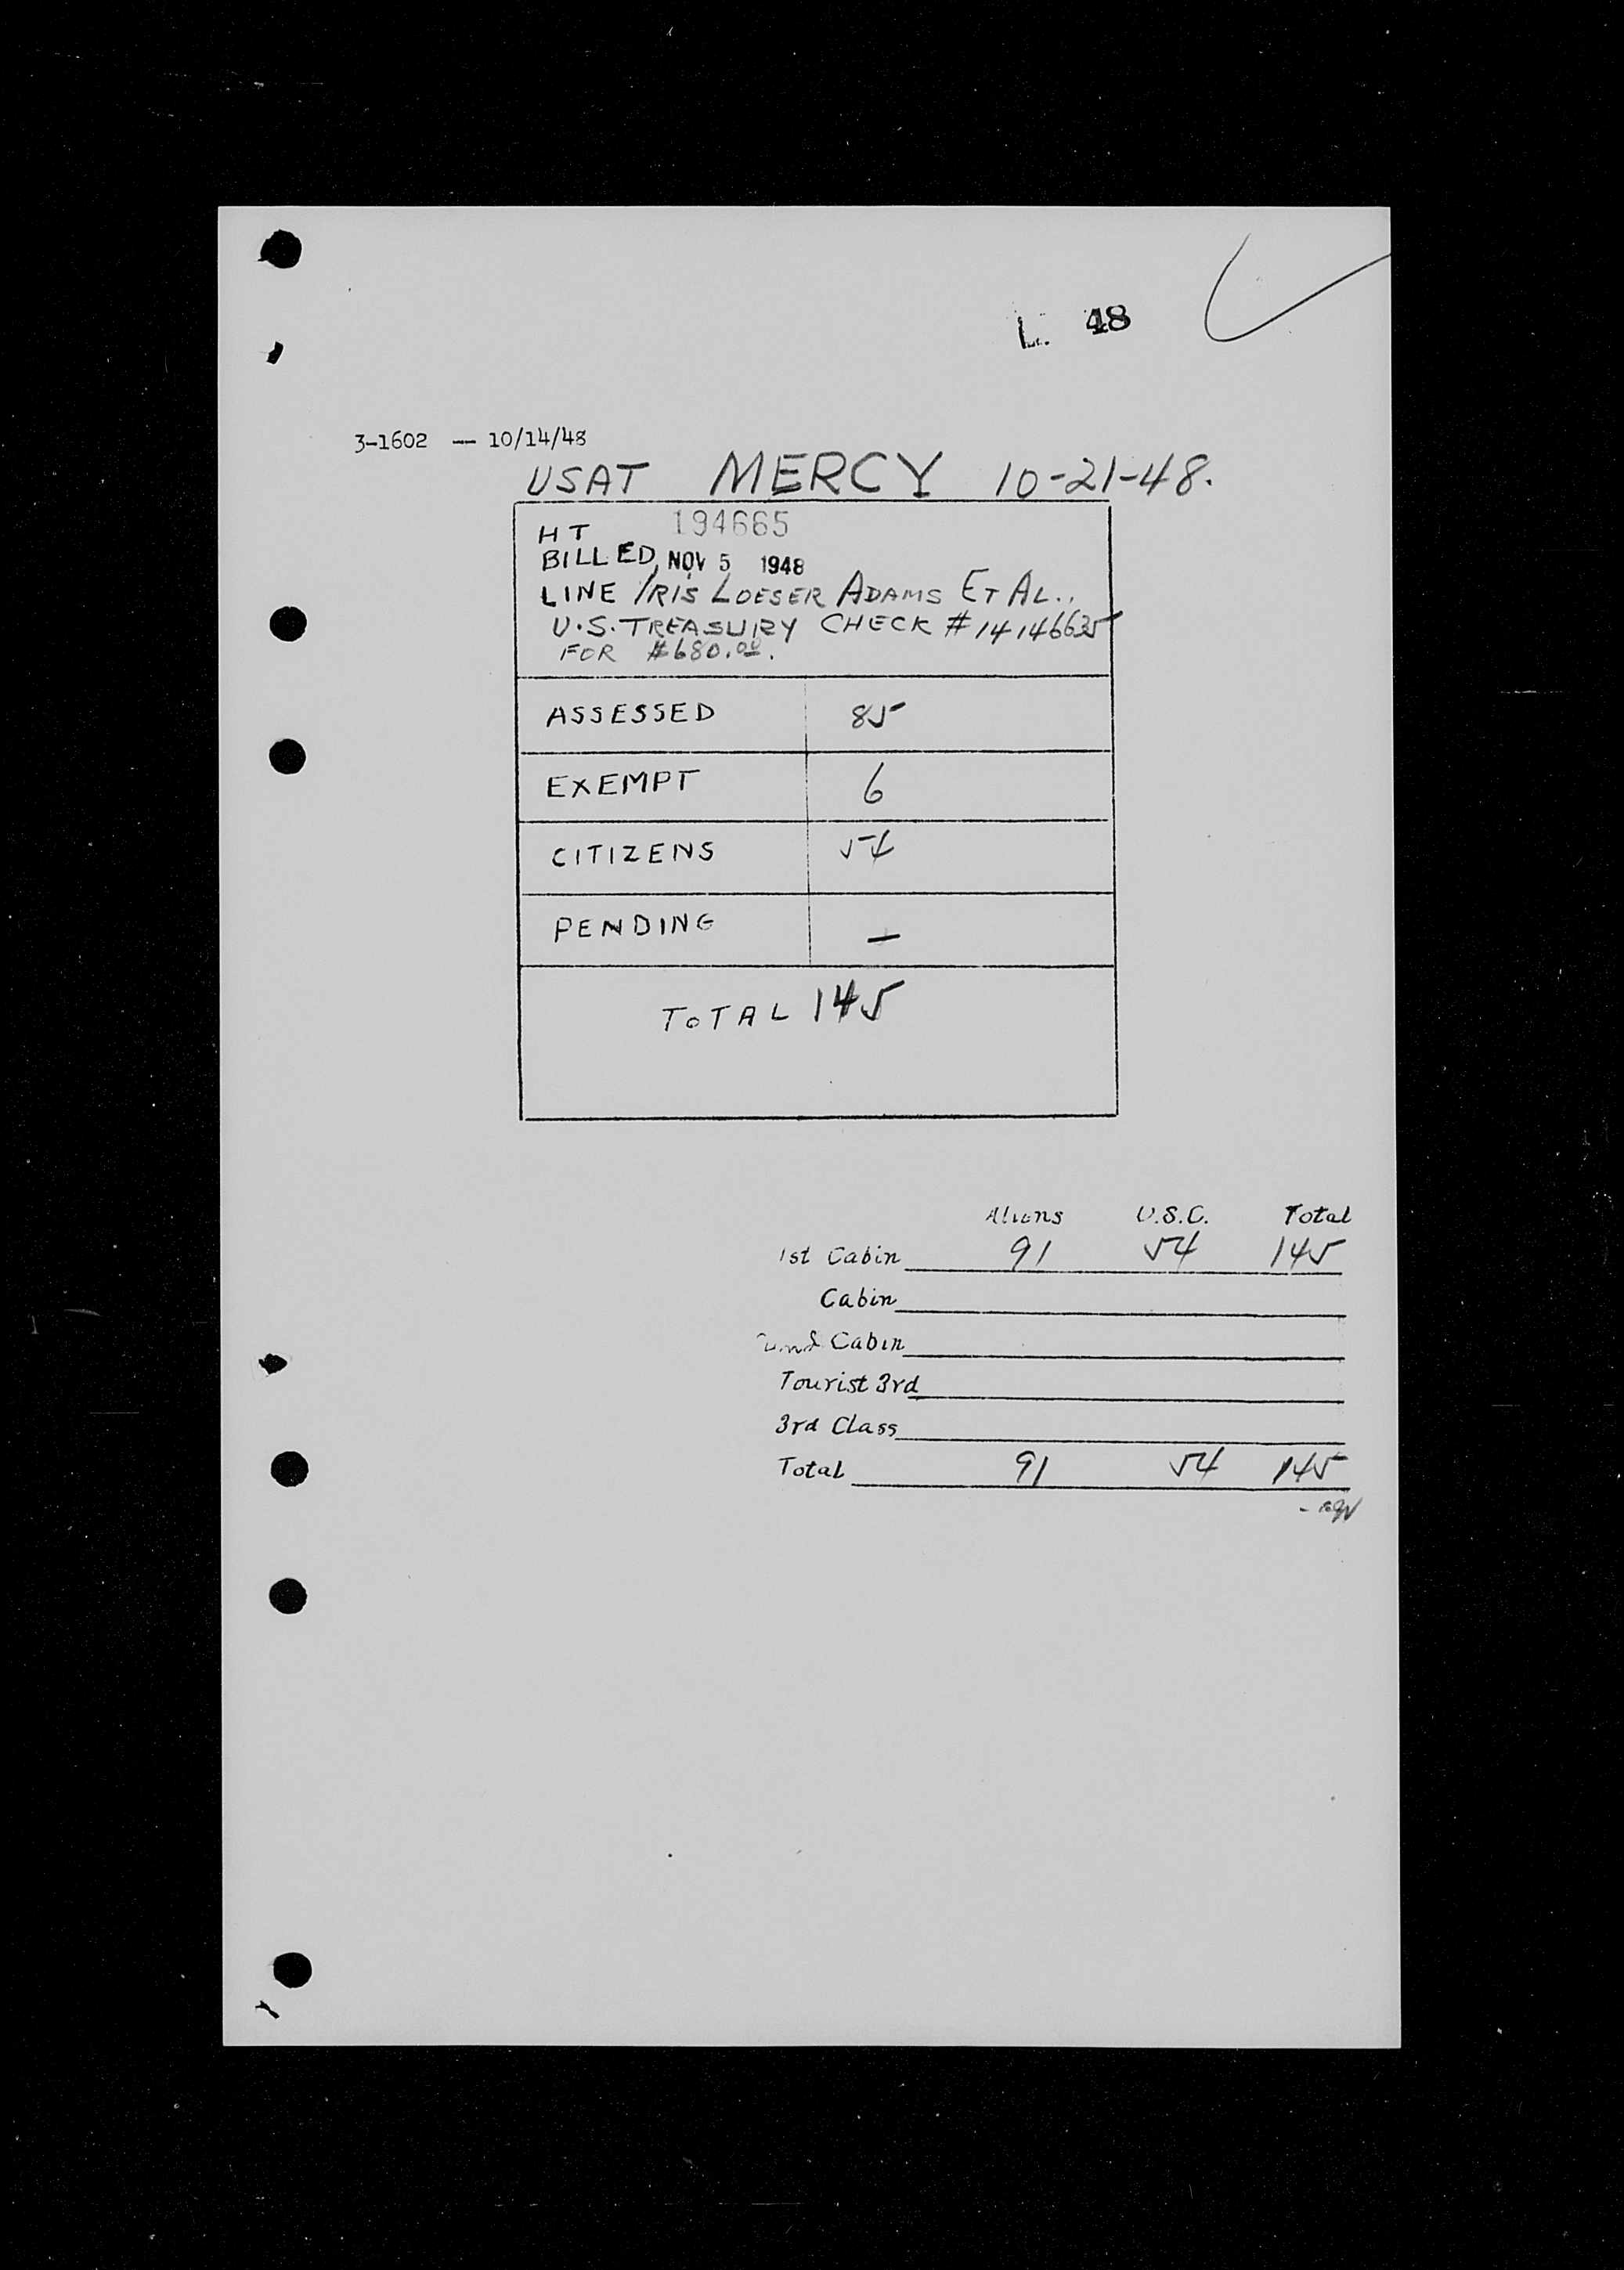 L. 48
3-1602 — 10/14/48
USAT MERCY 10-21-48.
HT 194665
BILLED, NOV 5 1948
LINE IRIS LOESER ADAMS ET AL..
U.S. TREASURY CHECK # 14146635
FOR $680.00.
ASSESSED 85
EXEMPT 6
CITIZENS 54
PENDING —
TOTAL 145
Aliens U.S.C. Total
1st Cabin 91 54 145
Cabin
Cabin
Tourist 3rd
3rd Class
Total 91 54 145